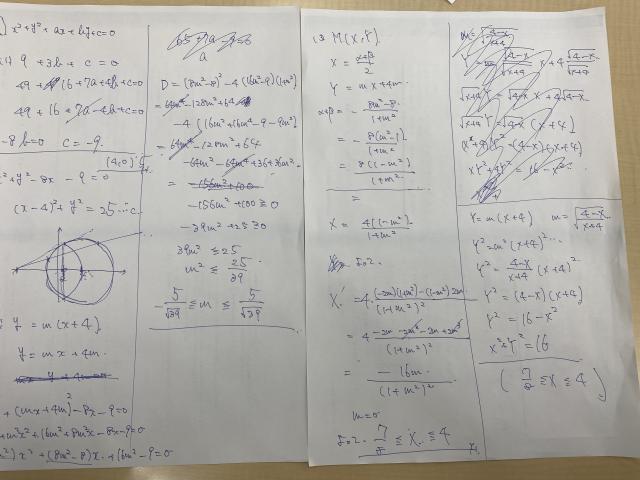 x²+y²+ax+by+c=0
9 +3b + c = 0
49 + 16 +7a+4b+c=0
49 + 16 +7a-4b+c=0
-8b=0 c = -9.
(4,0) 5
x²+y²-8x -9=0
(x-4)²+y²=25…c
y = m(x+4)
y = mx+4m.
+(mx+4m)²-8x-9=0
+m²x²+16m²+8m²x-8x-9=0
)x²+(8m²-8)x+16m²-9=0
65+7a
a
D=(8m²-8)²-4(16m²-9)(1+m²)
=64m⁴-128m²+64
-4(16m²+16m⁴-9-9m²)
=64m⁴-128m²+64
-64m²-64m⁴+36+36m²
=-156m²+100
-156m²+100≧0
-39m²+25≧0
39m²≦25
m²≦25/39
-5/√39≦m≦5/√39
(3) M(X,Y)
X=(α+β)/2
Y=mX+4m
α+β=-(8m²-8)/(1+m²)
=-8(m²-1)/(1+m²)
=8(1-m²)/(1+m²)
X=4(1-m²)/(1+m²)
よって.
X'=4·(-2m)(1+m²)-(1-m²)2m/(1+m²)²
=4·-2m-2m³-2m+2m³/(1+m²)²
=-16m/(1+m²)²
m=0
よって. ≦X≦4
m=√(4-x)/√(x+4)
Y=√(4-x)/√(x+4) X+4√(4-x)/√(x+4)
√(x+4)Y=√(4-x)X+4√(4-x)
√(x+4)Y=√(4-x)(x+4)
X²+Y²=16
Y=m(x+4) m=√(4-x)/√(x+4)
Y²=m²(x+4)²…
Y²=(4-x)/(x+4) (x+4)²
Y²=(4-x)(x+4)
Y²=16-x²
x²+Y²=16
≦X≦4)